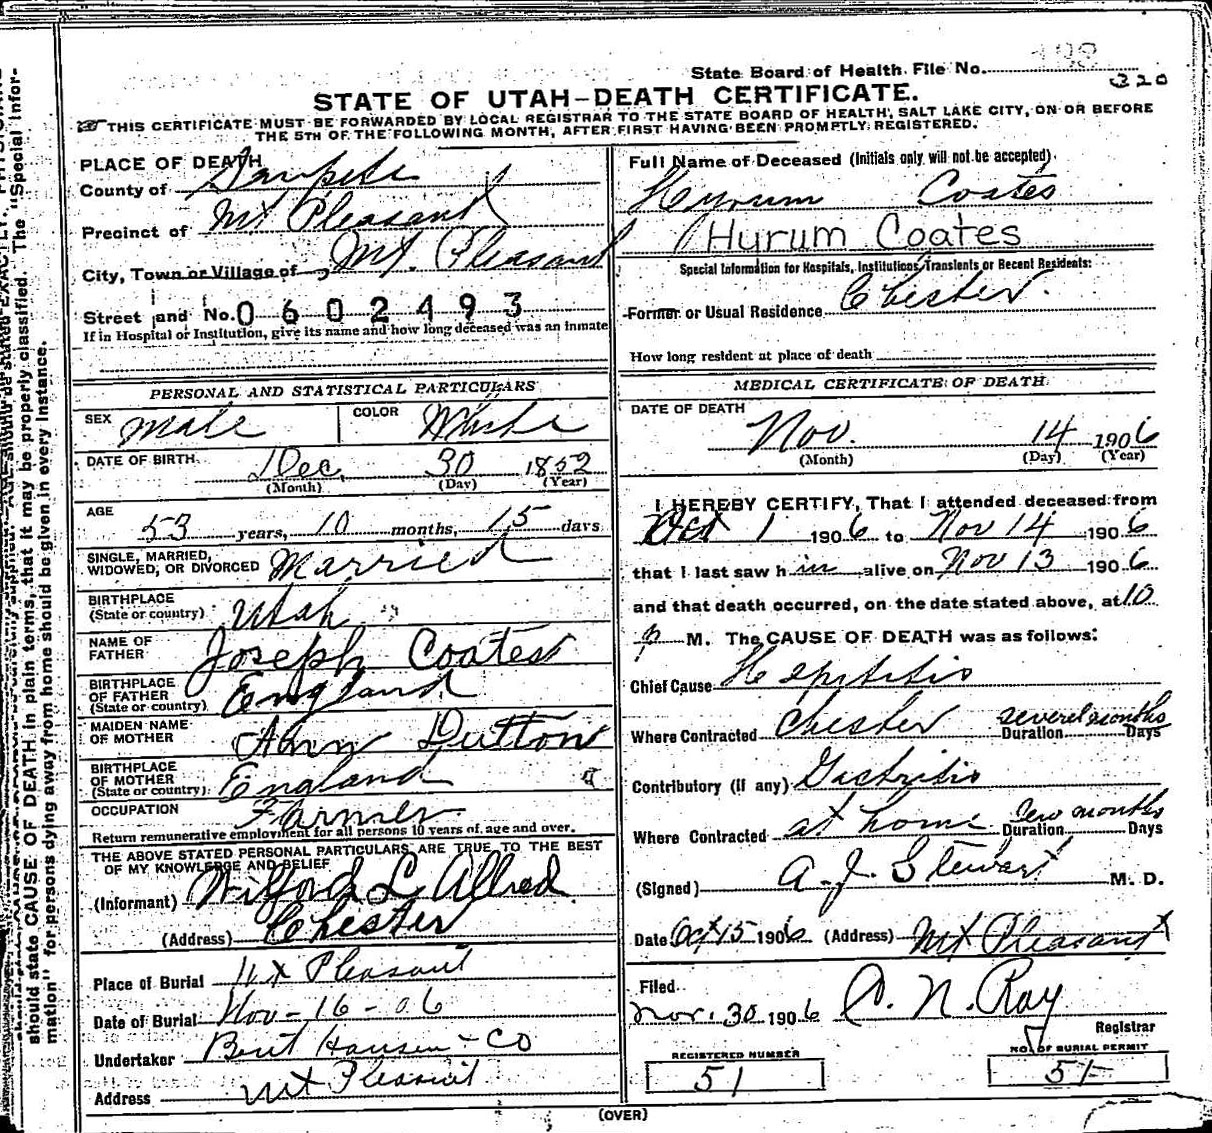 State Board of Health File No.
320
STATE OF UTAH—DEATH CERTIFICATE.
THIS CERTIFICATE MUST BE FORWARDED BY LOCAL REGISTRAR TO THE STATE BOARD OF HEALTH, SALT LAKE CITY, ON OR BEFORE
THE 5TH OF THE FOLLOWING MONTH, AFTER FIRST HAVING BEEN PROMPTLY REGISTERED.
PLACE OF DEATH
County of Sanpete
Precinct of Mt Pleasant
City, Town or Village of Mt. Pleasant
Street and No. 0602493
If in Hospital or Institution, give its name and how long deceased was an inmate
Full Name of Deceased (Initials only will not be accepted).
Hyrum Coates
Hyrum Coates
Special Information for Hospitals, Institutions, Transients or Recent Residents:
Former or Usual Residence Chester.
How long resident at place of death
PERSONAL AND STATISTICAL PARTICULARS
SEX Male COLOR White
DATE OF BIRTH Dec. 30 1852
(Month) (Day) (Year)
AGE 53 years, 10 months, 15 days
SINGLE, MARRIED,
WIDOWED, OR DIVORCED Married
BIRTHPLACE
(State or country) Utah
NAME OF
FATHER Joseph Coates
BIRTHPLACE
OF FATHER
(State or country) England
MAIDEN NAME
OF MOTHER Ann Dutton
BIRTHPLACE
OF MOTHER
(State or country) England
OCCUPATION Farmer
Return remunerative employment for all persons 10 years of age and over.
THE ABOVE STATED PERSONAL PARTICULARS ARE TRUE TO THE BEST
OF MY KNOWLEDGE AND BELIEF
(Informant) Wilford L Allred
(Address) Chester
Place of Burial Mt Pleasant
Date of Burial Nov-16-06
Undertaker Bent Hansen-Co
Address Mt Pleasant
MEDICAL CERTIFICATE OF DEATH
DATE OF DEATH
Nov. 14 1906
(Month) (Day) (Year)
I HEREBY CERTIFY, That I attended deceased from
Oct 1 1906 to Nov 14 1906
that I last saw him alive on Nov 13 1906
and that death occurred, on the date stated above, at 10
p M. The CAUSE OF DEATH was as follows:
Chief Cause Hepititis
Where Contracted Chester Duration several months Days
Contributory (if any) Gastritis
Where Contracted at home Duration few months Days
(Signed) A. J. Stewart M. D.
Date Oct 15 1906 (Address) Mt Pleasant
Filed
Nov. 30 1906 C. N. Ray
Registrar
REGISTERED NUMBER
51
NO. OF BURIAL PERMIT
51
(OVER)
should state CAUSE OF DEATH in plain terms, that it may be properly classified. The "Special Infor-
mation" for persons dying away from home should be given in every instance.